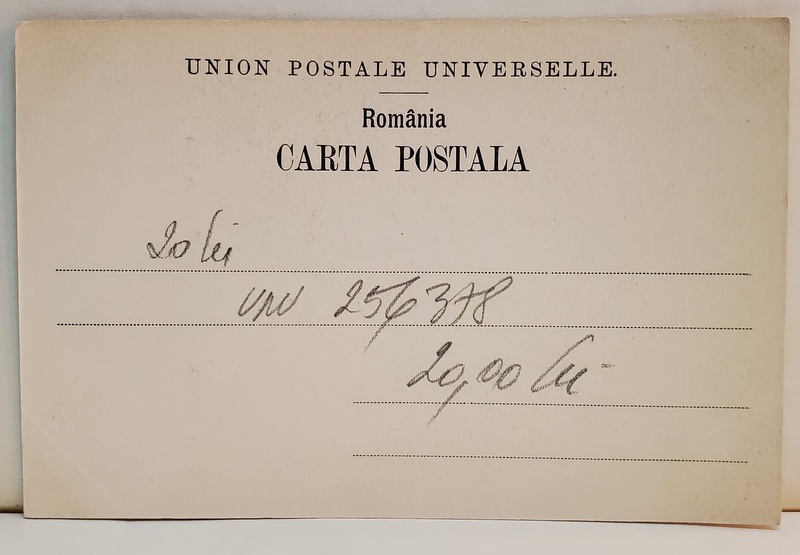 UNION POSTALE UNIVERSELLE.
România
CARTA POSTALA
20 lei
256378
20,00 lei